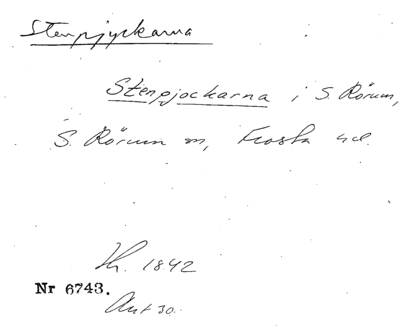 Stenpjyckarna
Stenpjockarna i S. Rörum,
S. Rörum sn, Frosta hd.
1842
Nr 6743.
Ant 30.